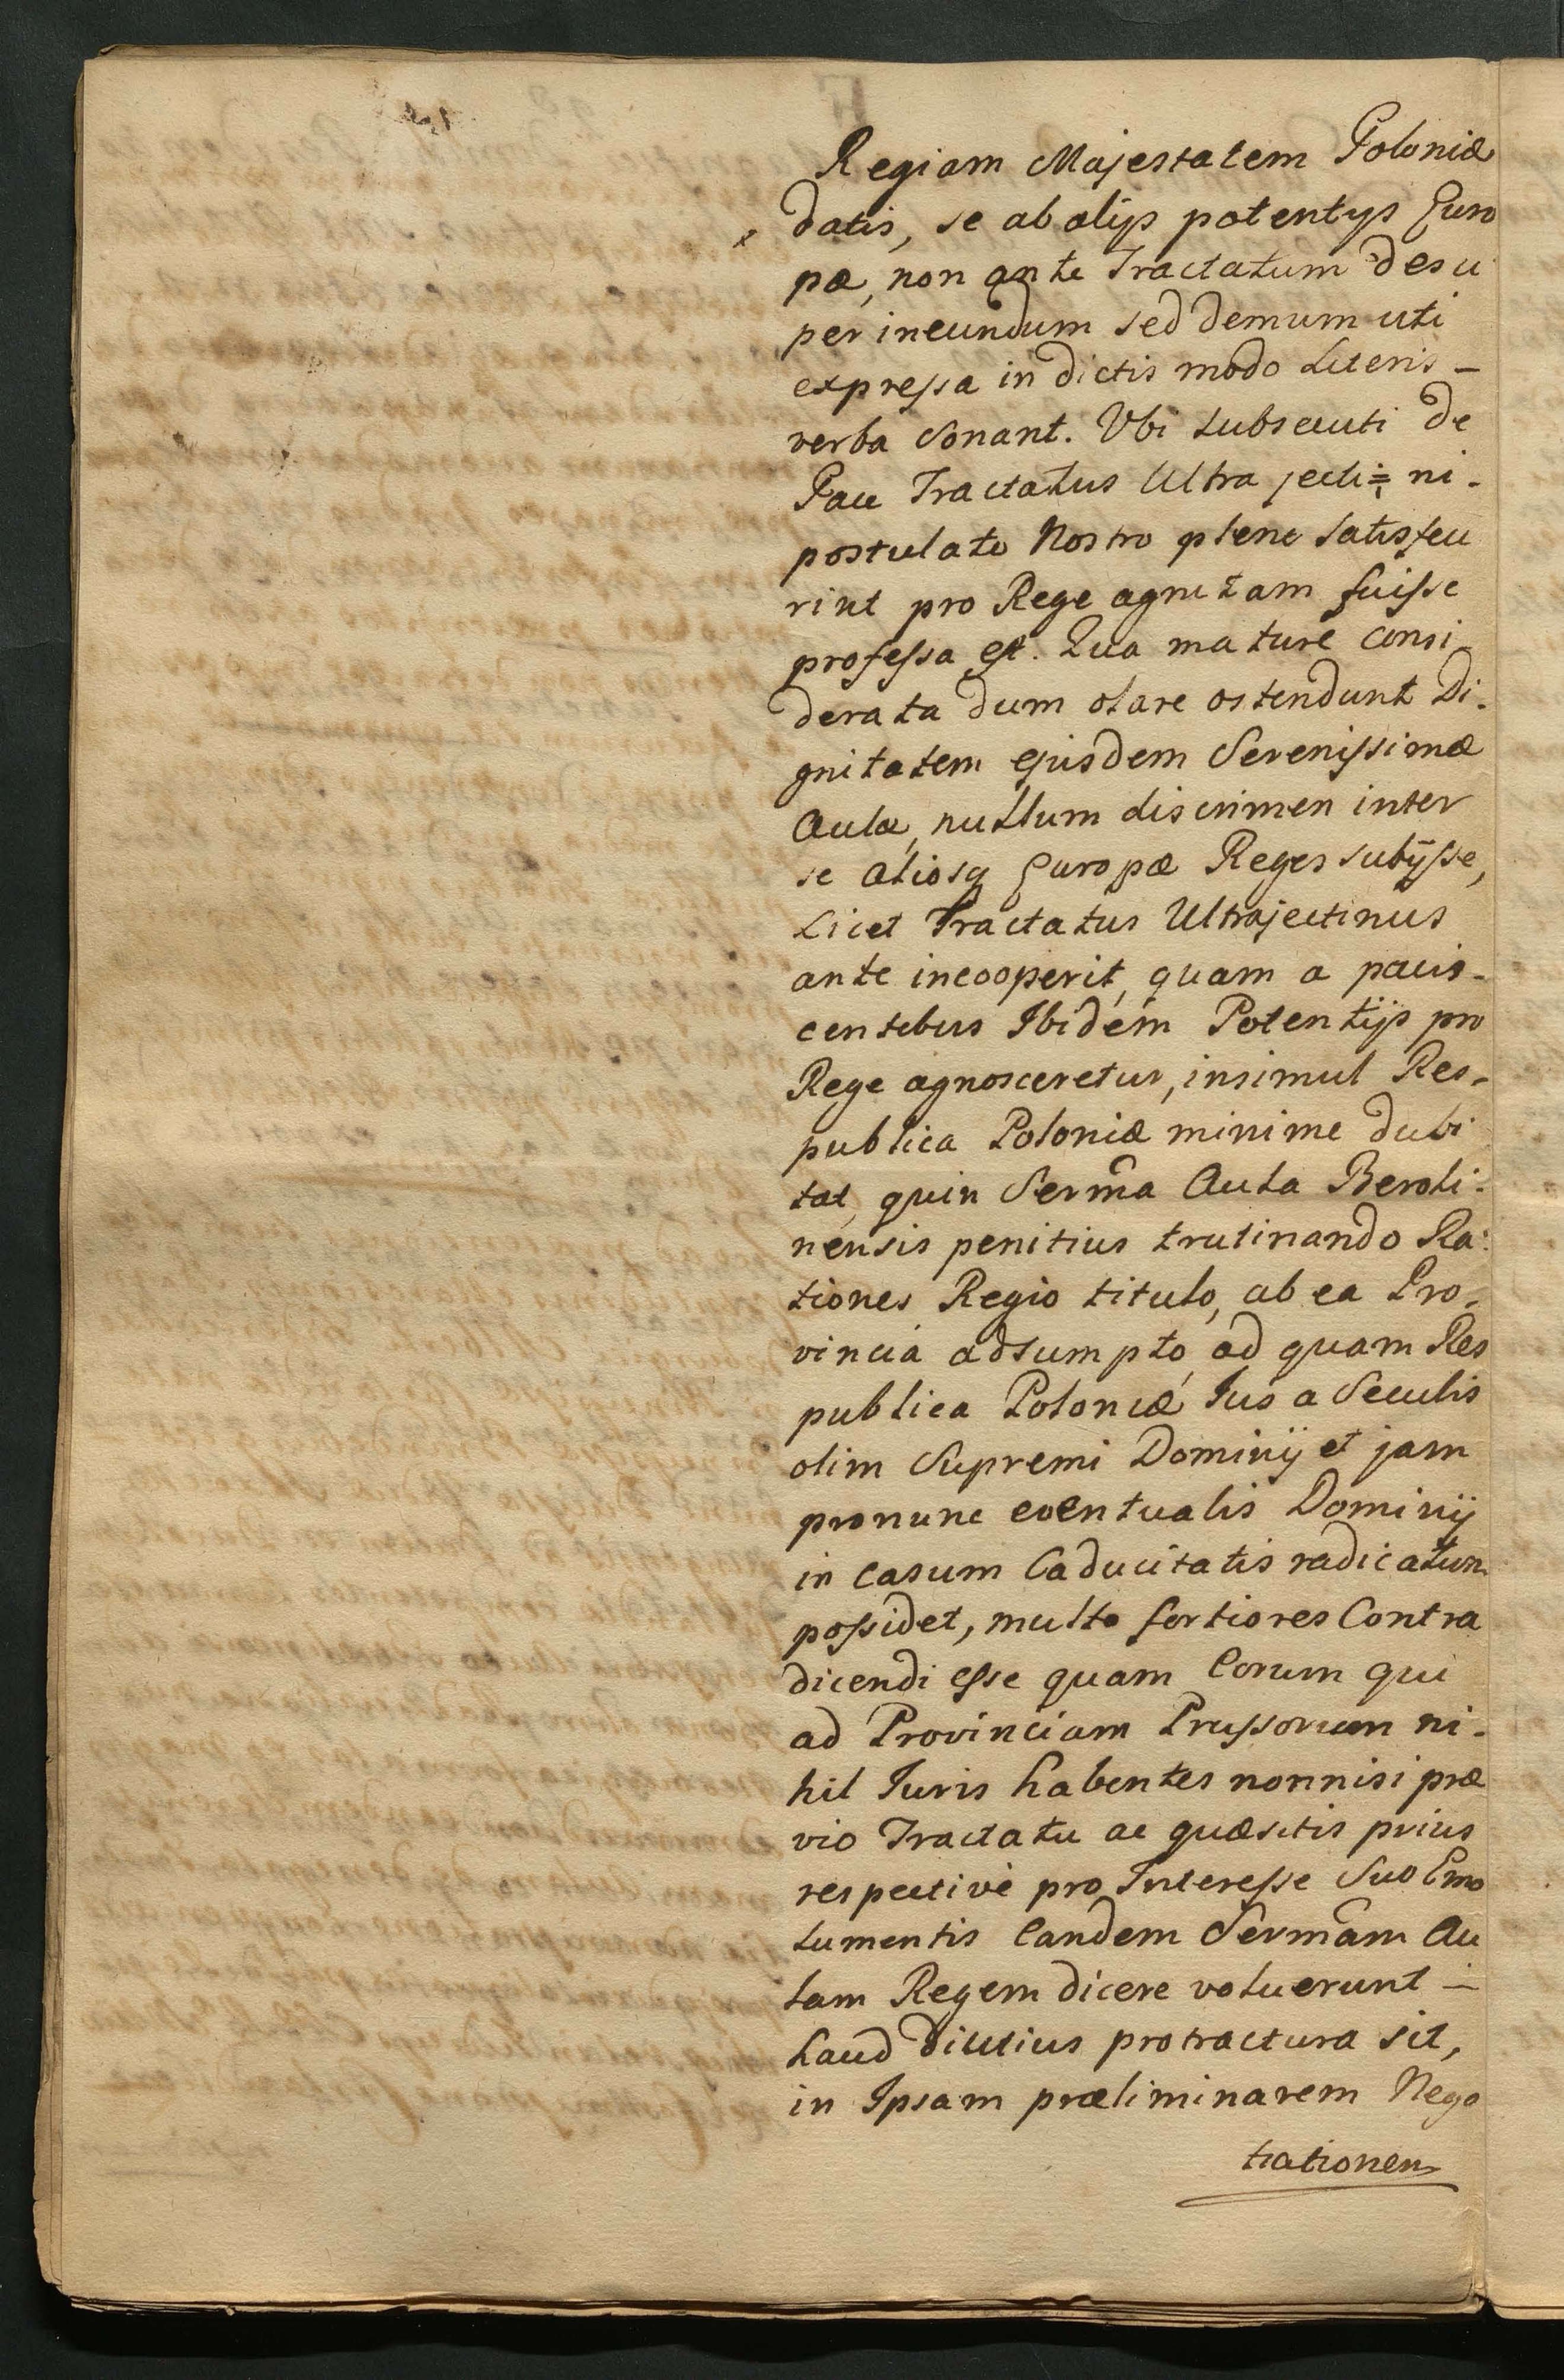 Regiam Majestatem Poloniæ
datis, se ab alijs potentijs Euro
pæ, non ante Tractatum desu
per ineundum sed demum uti
expressa in dictis modo Literis -
verba sonant. Vbi subsecuti de
Pace Tractatus Ultrajecti÷ ni-
postulato Nostro plene satisfece
rint pro Rege agnitam fuisse
professa est. Qua mature consi-
derata dum clare ostendunt Di-
gnitatem ejusdem Serenissimæ
Aulæ, nullum discrimen inter
se aliosq Europæ Reges subijsse,
Licet Tractatus Ultrajectinus
ante incooperit, quam a pacis-
centibus Ibidem Potentijs pro
Rege agnosceretur, insimul Res-
publica Poloniæ minime dubi
tat, quin Serma Aula Beroli-
nensis penitius trutinando Ra-
tiones Regio titulo, ab ea Pro-
vincia adsumpto, ad quam Res
publica Poloniæ Ius a Seculis
olim Supremi Dominij et jam
pronunc eventualis Dominij
in Casum Caducitatis radicatum
possidet, multo fortiores Contra
dicendi esse quam Eorum qui
ad Provinciam Prussorum ni-
hil Iuris habentes nonnisi præ
vio Tractatu ac quæsitis prius
respectivè pro Interesse Suo Emo
lumentis Eandem Sermam Au
lam Regem dicere voluerunt -
haud diutius protractura sit,
in Ipsam præliminarem Nego
tiationem